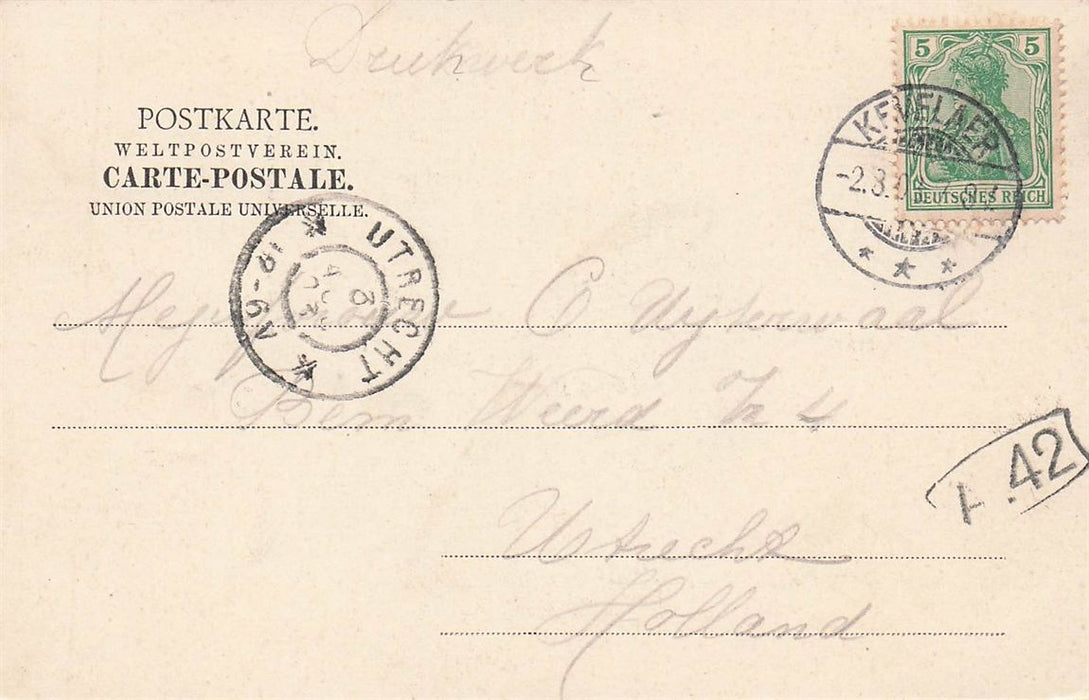 Drukwerk
5 5
DEUTSCHES REICH
KEVELAER
-2.8.0
POSTKARTE.
WELTPOSTVEREIN.
CARTE-POSTALE.
UNION POSTALE UNIVERSELLE.
UTRECHT
3
AUG
Mejuffrouw C Uijterwaal
Bem Weerd Zz 4
.42
Utrecht
Holland